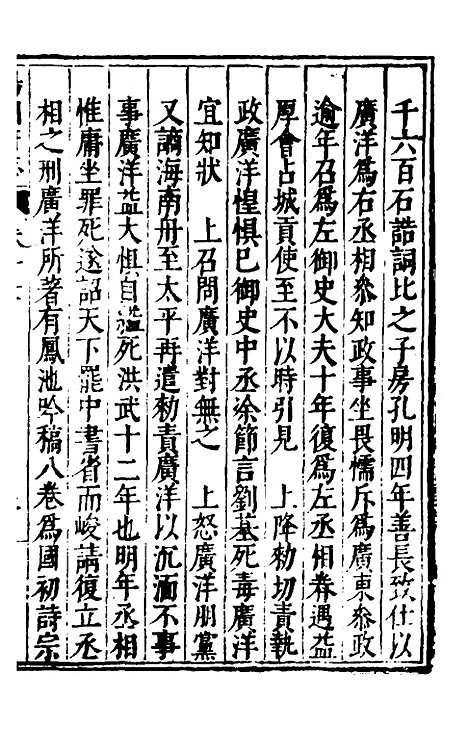 千六百石誥詞比之子房孔明四年善長致仕以
廣洋爲右丞相叅知政事坐畏懦斥爲廣東叅政
逾年召爲左御史大夫十年復爲左丞相春遇益
厚會占城貢使至不以時引見　上降勅切責執
政廣洋惶惧巳御史中丞涂節言劉基死毒廣洋
宜知狀　上召問廣洋對無之　上怒廣洋朋黨
又謫海南舟至太平再遣勅責廣洋以沉湎不事
事廣洋益大惧自縊死洪武十二年也明年丞相
惟庸坐罪死遂詔天下罷中書省而峻請復立丞
相之刑廣洋所著有鳳池吟稿八卷爲國初詩宗